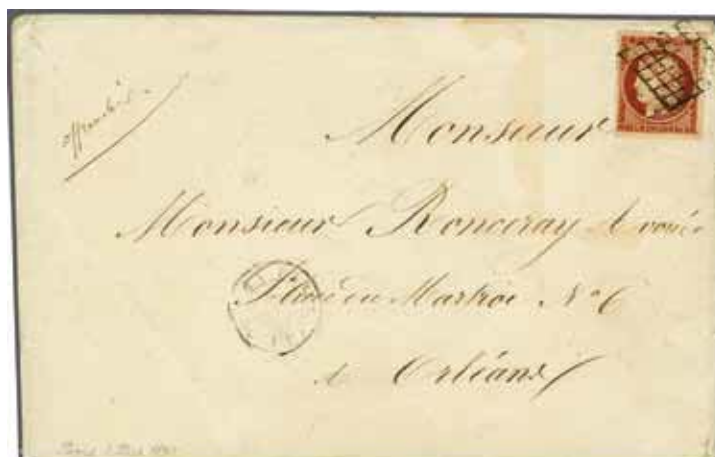 affranchie
Monsieur
Monsieur Ronceray Avoué
Place du Martroi N° 6
à Orléans